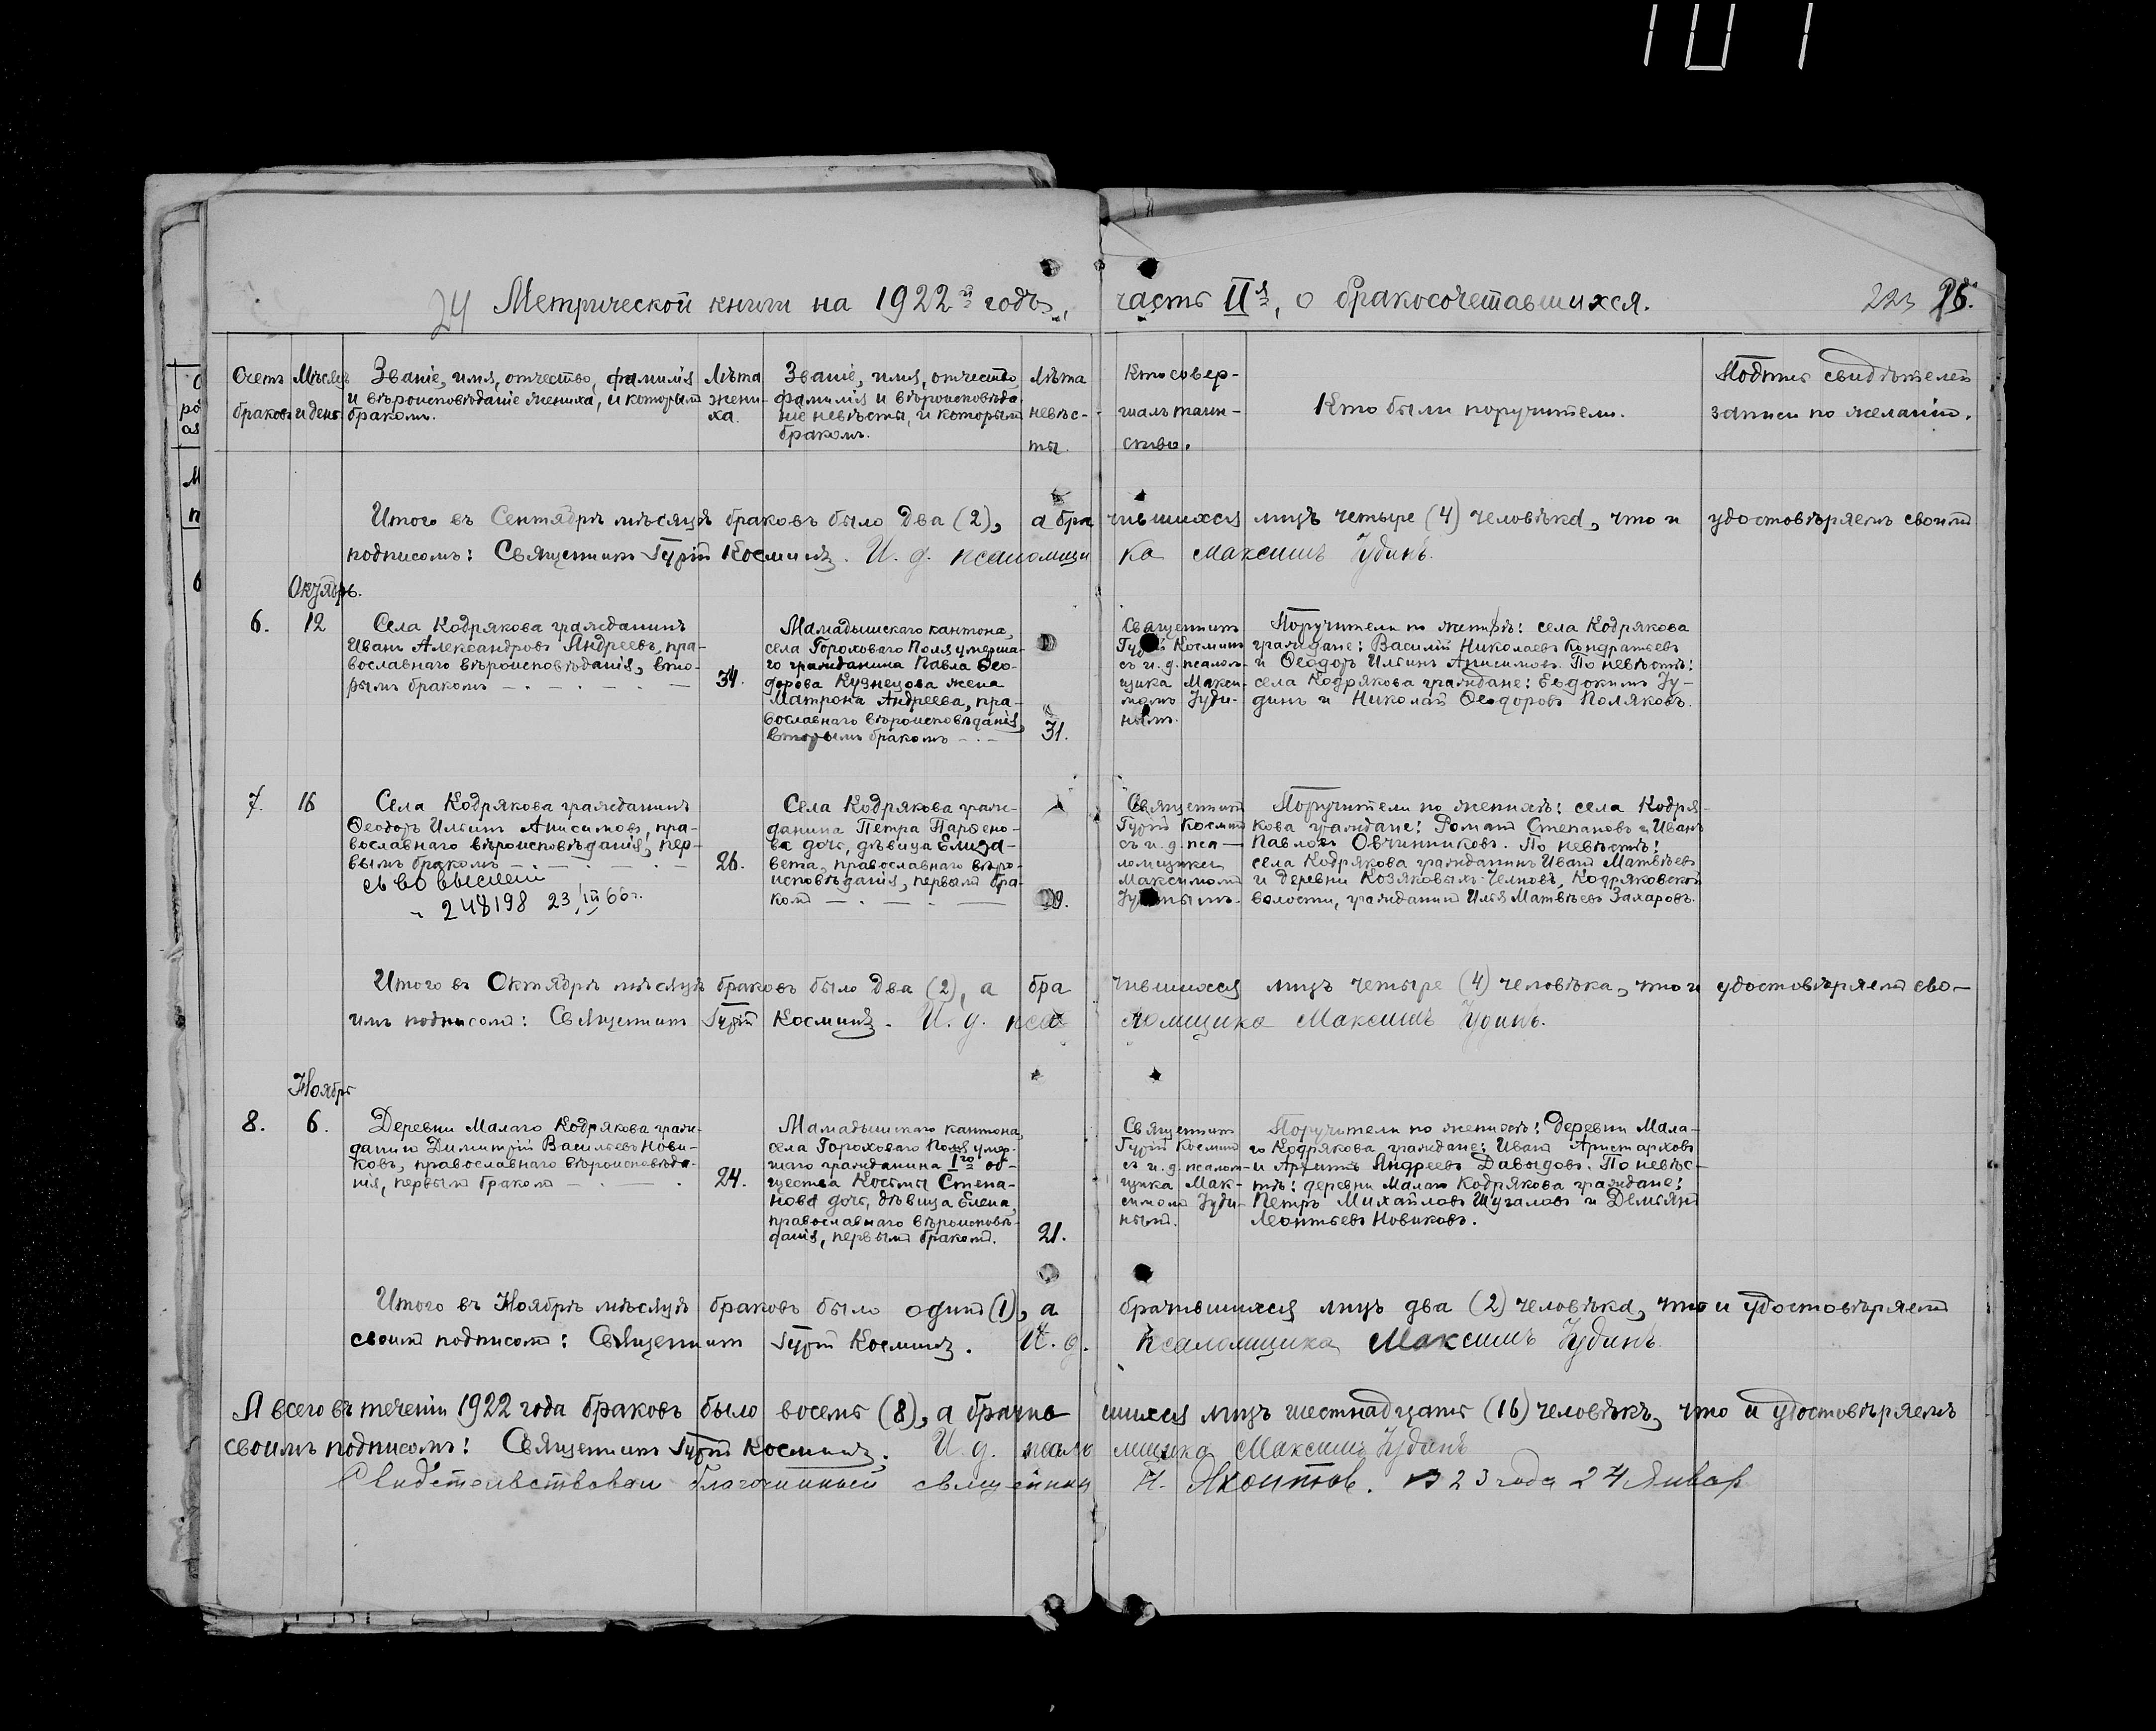 101
24 Метрической книги на 1922й годъ, часть IIя, о бракосочетавшихся. 25.
Счетъ браковъ
Мѣсяцъ и день
Званіе, имя, отчество, фамилія
и вѣроисповѣданіе жениха, и которымъ
бракомъ.
Лѣта
жени-
ха.
Званіе, имя, отчество,
фамилія и вѣроисповѣда-
ніе невѣсты, и которымъ
бракомъ.
Лѣта
невѣс-
ты.
Кто совер-
шалъ таин-
ство.
Кто были поручители.
Подпись свидѣтелей
записи по желанію.
Итого въ Сентябрѣ мѣсяцѣ браковъ было два (2), а бра чившихся лицъ четыре (4) человѣка, что и удостовѣряемъ своимъ
подписомъ: Священникъ Гурій Косминъ. И. д. псаломщи ка Максимъ Юдинъ.
Октябрь.
6.
12
Села Кодрякова гражданинъ
Иванъ Александровъ Андреевъ, пра-
вославнаго вѣроисповѣданія, вто-
рымъ бракомъ
34.
Мамадышскаго кантона,
села Гороховаго Поля умерша-
го гражданина Павла Ѳео-
дорова Кузнецова жена
Матрона Андреева, пра-
вославнаго вѣроисповѣданія,
вторымъ бракомъ
31.
Священникъ
Гурій Косминъ
съ и. д. псалом-
щика Макси-
момъ Юди-
нымъ.
Поручители по женихѣ: села Кодрякова
граждане: Василій Николаевъ Кондратьевъ
и Ѳеодоръ Ильинъ Анисимовъ. По невѣстѣ:
села Кодрякова граждане: Евдокимъ Ю-
динъ и Николай Ѳеодоровъ Поляковъ.
7.
16
Села Кодрякова гражданинъ
Ѳеодоръ Ильинъ Анисимовъ, пра-
вославнаго вѣроисповѣданія, пер-
вымъ бракомъ
26.
248198 23/III 66 г.
Села Кодрякова граж-
данина Петра Парѳено-
ва дочь, дѣвица Елиза-
вета, православнаго вѣро-
исповѣданія, первымъ бра-
комъ
Священникъ
Гурій Косминъ
съ и. д. пса-
ломщика
Максимомъ
Юдинымъ.
Поручители по женихѣ: села Кодря-
кова граждане: Романъ Степановъ и Иванъ
Павловъ Овчинниковъ. По невѣстѣ:
села Кодрякова гражданинъ Иванъ Матвѣевъ
и деревни Козяковыхъ-Челновъ, Кодряковской
волости, гражданинъ Илья Матвѣевъ Захаровъ.
Итого въ Октябрѣ мѣсяцѣ браковъ было два (2), а бра чившихся лицъ четыре (4) человѣка, что и удостовѣряемъ сво-
имъ подписомъ: Священникъ Гурій Косминъ. И. д. пса ломщика Максимъ Юдинъ.
Ноябрь
8.
6.
Деревни Малаго Кодрякова граж-
данинъ Димитрій Васильевъ Нови-
ковъ, православнаго вѣроисповѣда-
нія, первымъ бракомъ
24.
Мамадышскаго кантона,
села Гороховаго Поля умер-
шаго гражданина 1го об-
щества Косьмы Степа-
нова дочь, дѣвица Елена,
православнаго вѣроисповѣ-
данія, первымъ бракомъ.
21.
Священникъ
Гурій Косминъ
съ и. д. псалом-
щика Мак-
симомъ Юди-
нымъ.
Поручители по женихѣ: деревни Мала-
го Кодрякова граждане: Иванъ Аристарховъ
и Андреевъ Давыдовъ. По невѣс-
тѣ: деревни Малаго Кодрякова граждане:
Петръ Михайловъ Шугаловъ и Демьянъ
Леонтьевъ Новиковъ.
Итого въ Ноябрѣ мѣсяцѣ браковъ было одинъ (1), а брачившихся лицъ два (2) человѣка, что и удостовѣряемъ
своимъ подписомъ: Священникъ Гурій Косминъ. И. д. псаломщика Максимъ Юдинъ.
А всего въ теченіи 1922 года браковъ было восемь (8), а брачив шихся лицъ шестнадцать (16) человѣкъ, что и удостовѣряемъ
своимъ подписомъ: Священникъ Гурій Косминъ. И. д. псало мщика Максимъ Юдинъ
Свидетельствовал благочинный священник 1923 года 24 Январ